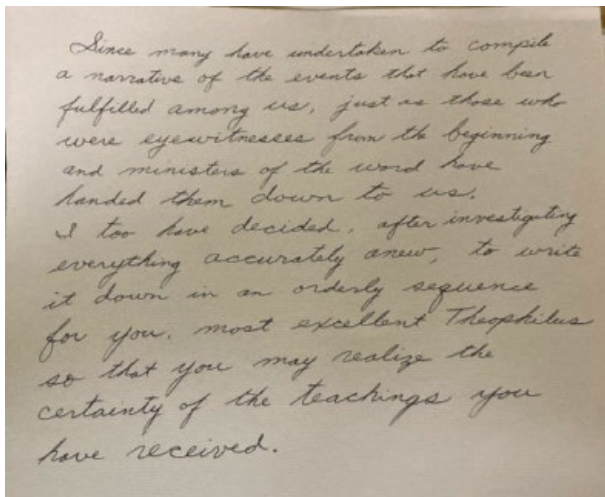 Since many have undertaken to compile
a narrative of the events that have been
fulfilled among us, just as those who
were eyewitnesses from the beginning
and ministers of the word have
handed them down to us.
I too have decided, after investigating
everything accurately anew, to write
it down in an orderly sequence
for you, most excellent Theophilus
so that you may realize the
certainty of the teachings you
have received.